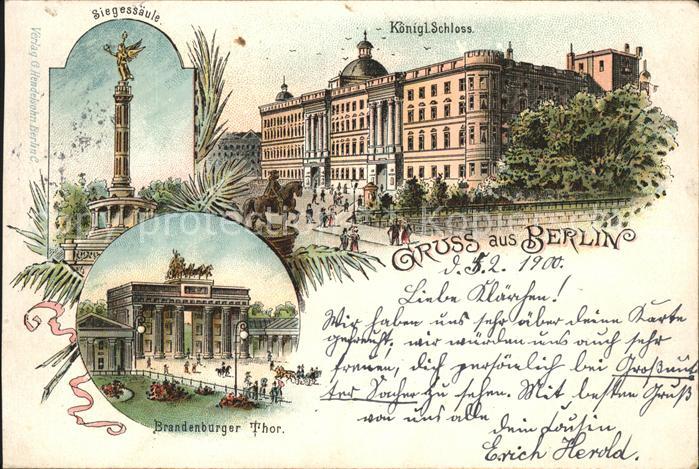 Siegessäule.
Königl. Schloss.
Verlag G. Hendelsohn, Berlin C
GRUSS aus BERLIN
d. 5.2. 1900.
Liebe Klärchen!
Wir haben uns sehr über deine Karte
gefreut, wir würden uns auch sehr
freuen, dich persönlich bei Großmut
ter Sacher zu sehen. Mit besten Gruß
von uns alle
dein Cousin
Erich Herold.
Brandenburger Thor.